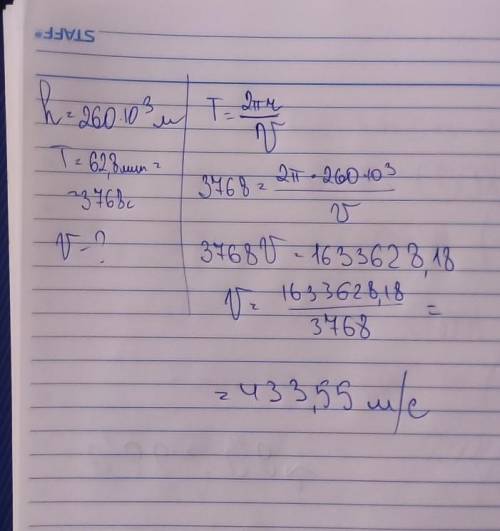 STAFF
h = 260·10³ м
T = 62,8 мин =
= 3768 с
V - ?
T = 2πr / V
3768 = 2π · 260·10³ / V
3768 V = 1633628,18
V = 1633628,18 / 3768 =
= 433,55 м/с